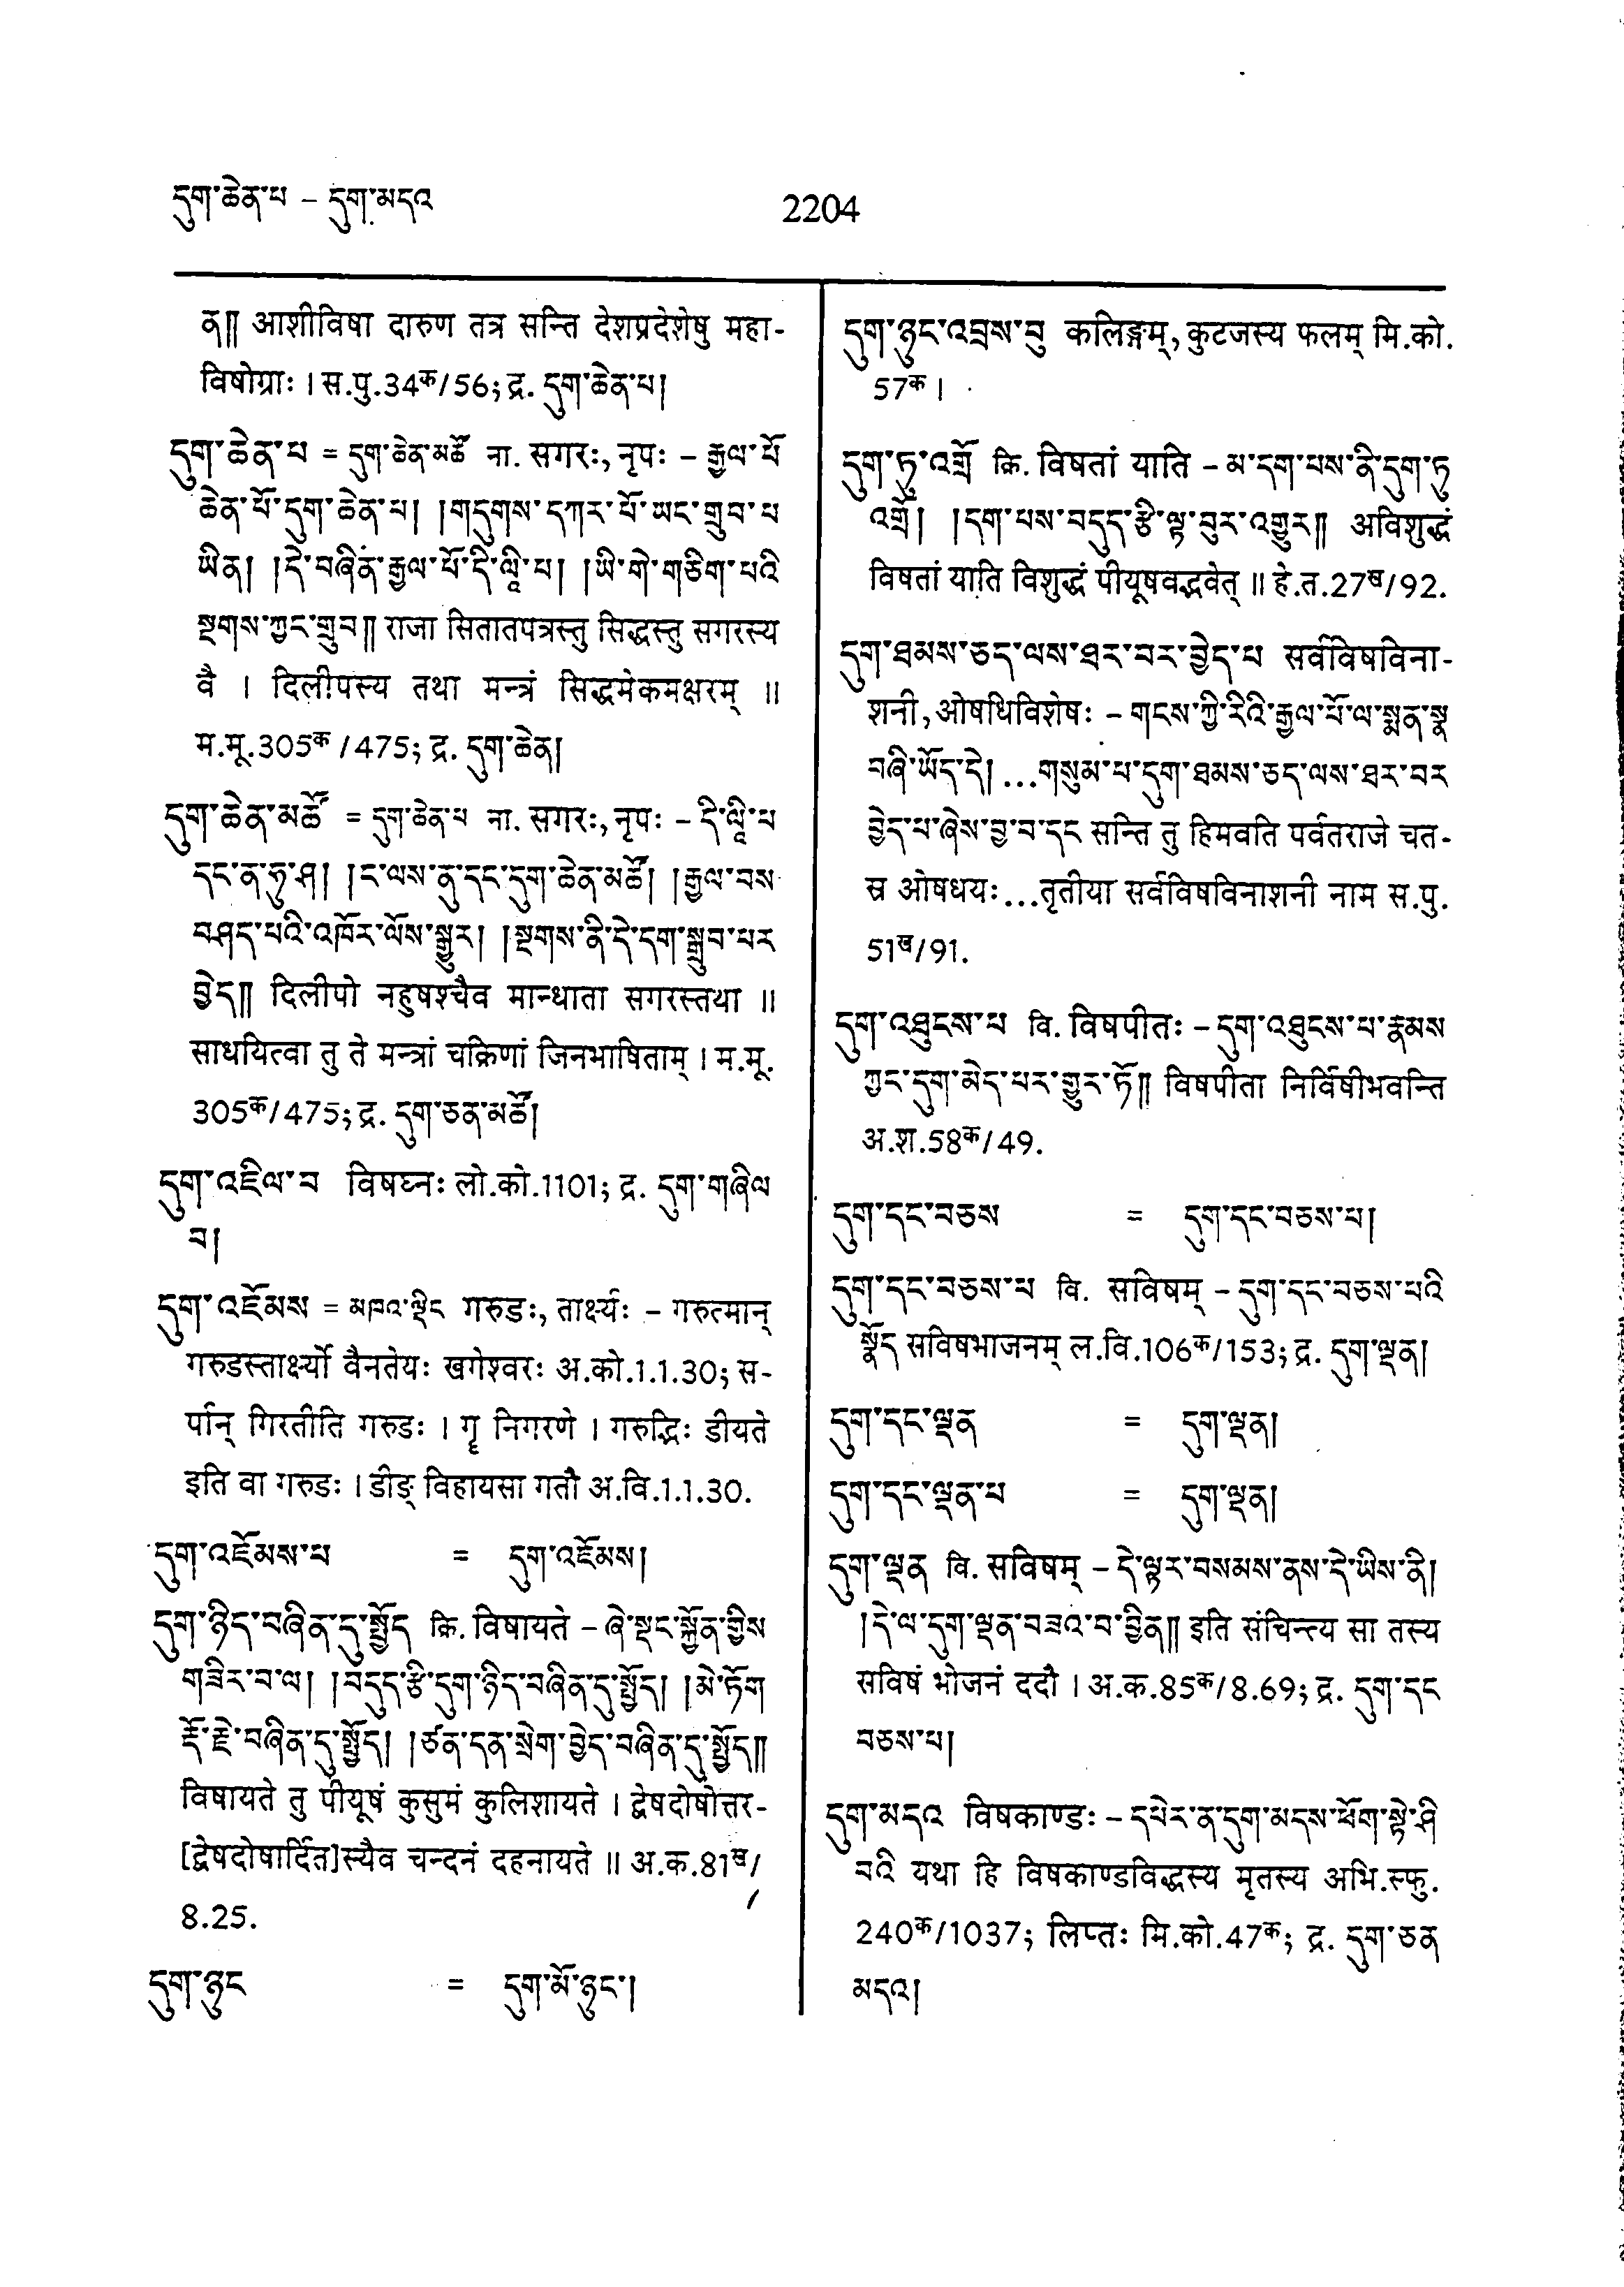 དུག་ཆེན་པ – དུག་མདའ
2204
ན༎ आशीविषा दारुण तत्र सन्ति देशप्रदेशेषु महा-
विषोग्राः । स.पु.34क/56; द्र. དུག་ཆེན་པ།
དུག་ཆེན་པ = དུག་ཆེན་མཚོ ना. सगरः, नृपः – རྒྱལ་པོ
ཆེན་པོ་དུག་ཆེན་པ། །གདུགས་དཀར་པོ་ཡང་གྲུབ་པ
ཡིན། །དེ་བཞིན་རྒྱལ་པོ་དི་ལཱི་པ། །ཡི་གེ་གཅིག་པའི
སྔགས་ཀྱང་གྲུབ༎ राजा सितातपत्रस्तु सिद्धस्तु सगरस्य
वै । दिलीपस्य तथा मन्त्रं सिद्धमेकमक्षरम् ॥
म.मू.305क/475; द्र. དུག་ཆེན།
དུག་ཆེན་མཚོ = དུག་ཆེན་པ ना. सगरः, नृपः – དི་ལཱི་པ
དང་ན་ཧུ་ཤ། །ང་ལས་ནུ་དང་དུག་ཆེན་མཚོ། །རྒྱལ་བས
བཤད་པའི་འཁོར་ལོས་སྒྱུར། །སྔགས་ནི་དེ་དག་སྒྲུབ་པར
བྱེད༎ दिलीपो नहुषश्चैव मान्धाता सगरस्तथा ॥
साधयित्वा तु ते मन्त्रां चक्रिणां जिनभाषिताम् । म.मू.
305क/475; द्र. དུག་ཅན་མཚོ།
དུག་འཇིལ་བ विषघ्नः लो.को.1101; द्र. དུག་གཞིལ
བ།
དུག་འཇོམས = མཁའ་ལྡིང गरुडः, तार्क्ष्यः – गरुत्मान्
गरुडस्तार्क्ष्यो वैनतेयः खगेश्वरः अ.को.1.1.30; स-
र्पान् गिरतीति गरुडः । गॄ निगरणे । गरुद्भिः डीयते
इति वा गरुडः । डीङ् विहायसा गतौ अ.वि.1.1.30.
དུག་འཇོམས་པ = དུག་འཇོམས།
དུག་ཉིད་བཞིན་དུ་སྤྱོད क्रि. विषायते – ཞེ་སྡང་སྐྱོན་གྱིས
གཟིར་བ་ལ། །བདུད་རྩི་དུག་ཉིད་བཞིན་དུ་སྤྱོད། །མེ་ཏོག
རྡོ་རྗེ་བཞིན་དུ་སྤྱོད། །ཙན་དན་སྲེག་བྱེད་བཞིན་དུ་སྤྱོད༎
विषायते तु पीयूषं कुसुमं कुलिशायते । द्वेषदोषोत्तर-
[द्वेषदोषार्दित]स्यैव चन्दनं दहनायते ॥ अ.क.81ख/
8.25.
དུག་ཉུང = དུག་མོ་ཉུང་།
དུག་ཉུང་འབྲས་བུ कलिङ्गम्, कुटजस्य फलम् मि.को.
57क ।
དུག་ཏུ་འགྲོ क्रि. विषतां याति – མ་དག་པས་ནི་དུག་ཏུ
འགྲོ། །དག་པས་བདུད་རྩི་ལྟ་བུར་འགྱུར༎ अविशुद्धं
विषतां याति विशुद्धं पीयूषवद्भवेत् ॥ हे.त.27ख/92.
དུག་ཐམས་ཅད་ལས་ཐར་བར་བྱེད་པ सर्वविषविना-
शनी, ओषधिविशेषः – གངས་ཀྱི་རིའི་རྒྱལ་པོ་ལ་སྨན་སྣ
བཞི་ཡོད་དེ། ...གསུམ་པ་དུག་ཐམས་ཅད་ལས་ཐར་བར
བྱེད་པ་ཞེས་བྱ་བ་དང सन्ति तु हिमवति पर्वतराजे चत-
स्र ओषधयः...तृतीया सर्वविषविनाशनी नाम स.पु.
51ख/91.
དུག་འཐུངས་པ वि. विषपीतः – དུག་འཐུངས་པ་རྣམས
ཀྱང་དུག་མེད་པར་གྱུར་ཏོ༎ विषपीता निर्विषीभवन्ति
अ.श.58क/49.
དུག་དང་བཅས = དུག་དང་བཅས་པ།
དུག་དང་བཅས་པ वि. सविषम् – དུག་དང་བཅས་པའི
སྣོད सविषभाजनम् ल.वि.106क/153; द्र. དུག་ལྡན།
དུག་དང་ལྡན = དུག་ལྡན།
དུག་དང་ལྡན་པ = དུག་ལྡན།
དུག་ལྡན वि. सविषम् – དེ་ལྟར་བསམས་ནས་དེ་ཡིས་ནི།
།དེ་ལ་དུག་ལྡན་བཟའ་བ་བྱིན༎ इति संचिन्त्य सा तस्य
सविषं भोजनं ददौ । अ.क.85क/8.69; द्र. དུག་དང
བཅས་པ།
དུག་མདའ विषकाण्डः – དཔེར་ན་དུག་མདས་ཕོག་སྟེ་ཤི
བའི यथा हि विषकाण्डविद्धस्य मृतस्य अभि.स्फु.
240क/1037; लिप्तः मि.को.47क; द्र. དུག་ཅན
མདའ།